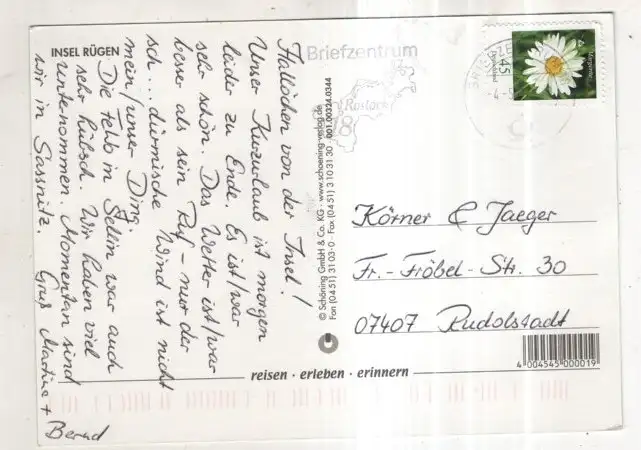 INSEL RÜGEN
Hallöchen von der Insel!
Unser Kurzurlaub ist morgen
leider zu Ende. Es ist/war
sehr schön. Das Wetter ist/war
besser als sein Ruf – nur der
stürmische Wind ist nicht
mein/unser Ding.
Die FeWo in Sellin war auch
sehr hübsch. Wir haben viel
unternommen. Momentan sind
wir in Sassnitz. Gruß Martina +
Bernd
© Schöning GmbH & Co. KG · www.schoening-verlag.de
Fon (04 51) 31 03-0 · Fax (04 51) 3 10 31 30 · 001.00324.0344
Briefzentrum
Rostock
18
45
Körner & Jaeger
Fr.-Fröbel-Str. 30
07407 Rudolstadt
4 004545 000019
reisen · erleben · erinnern